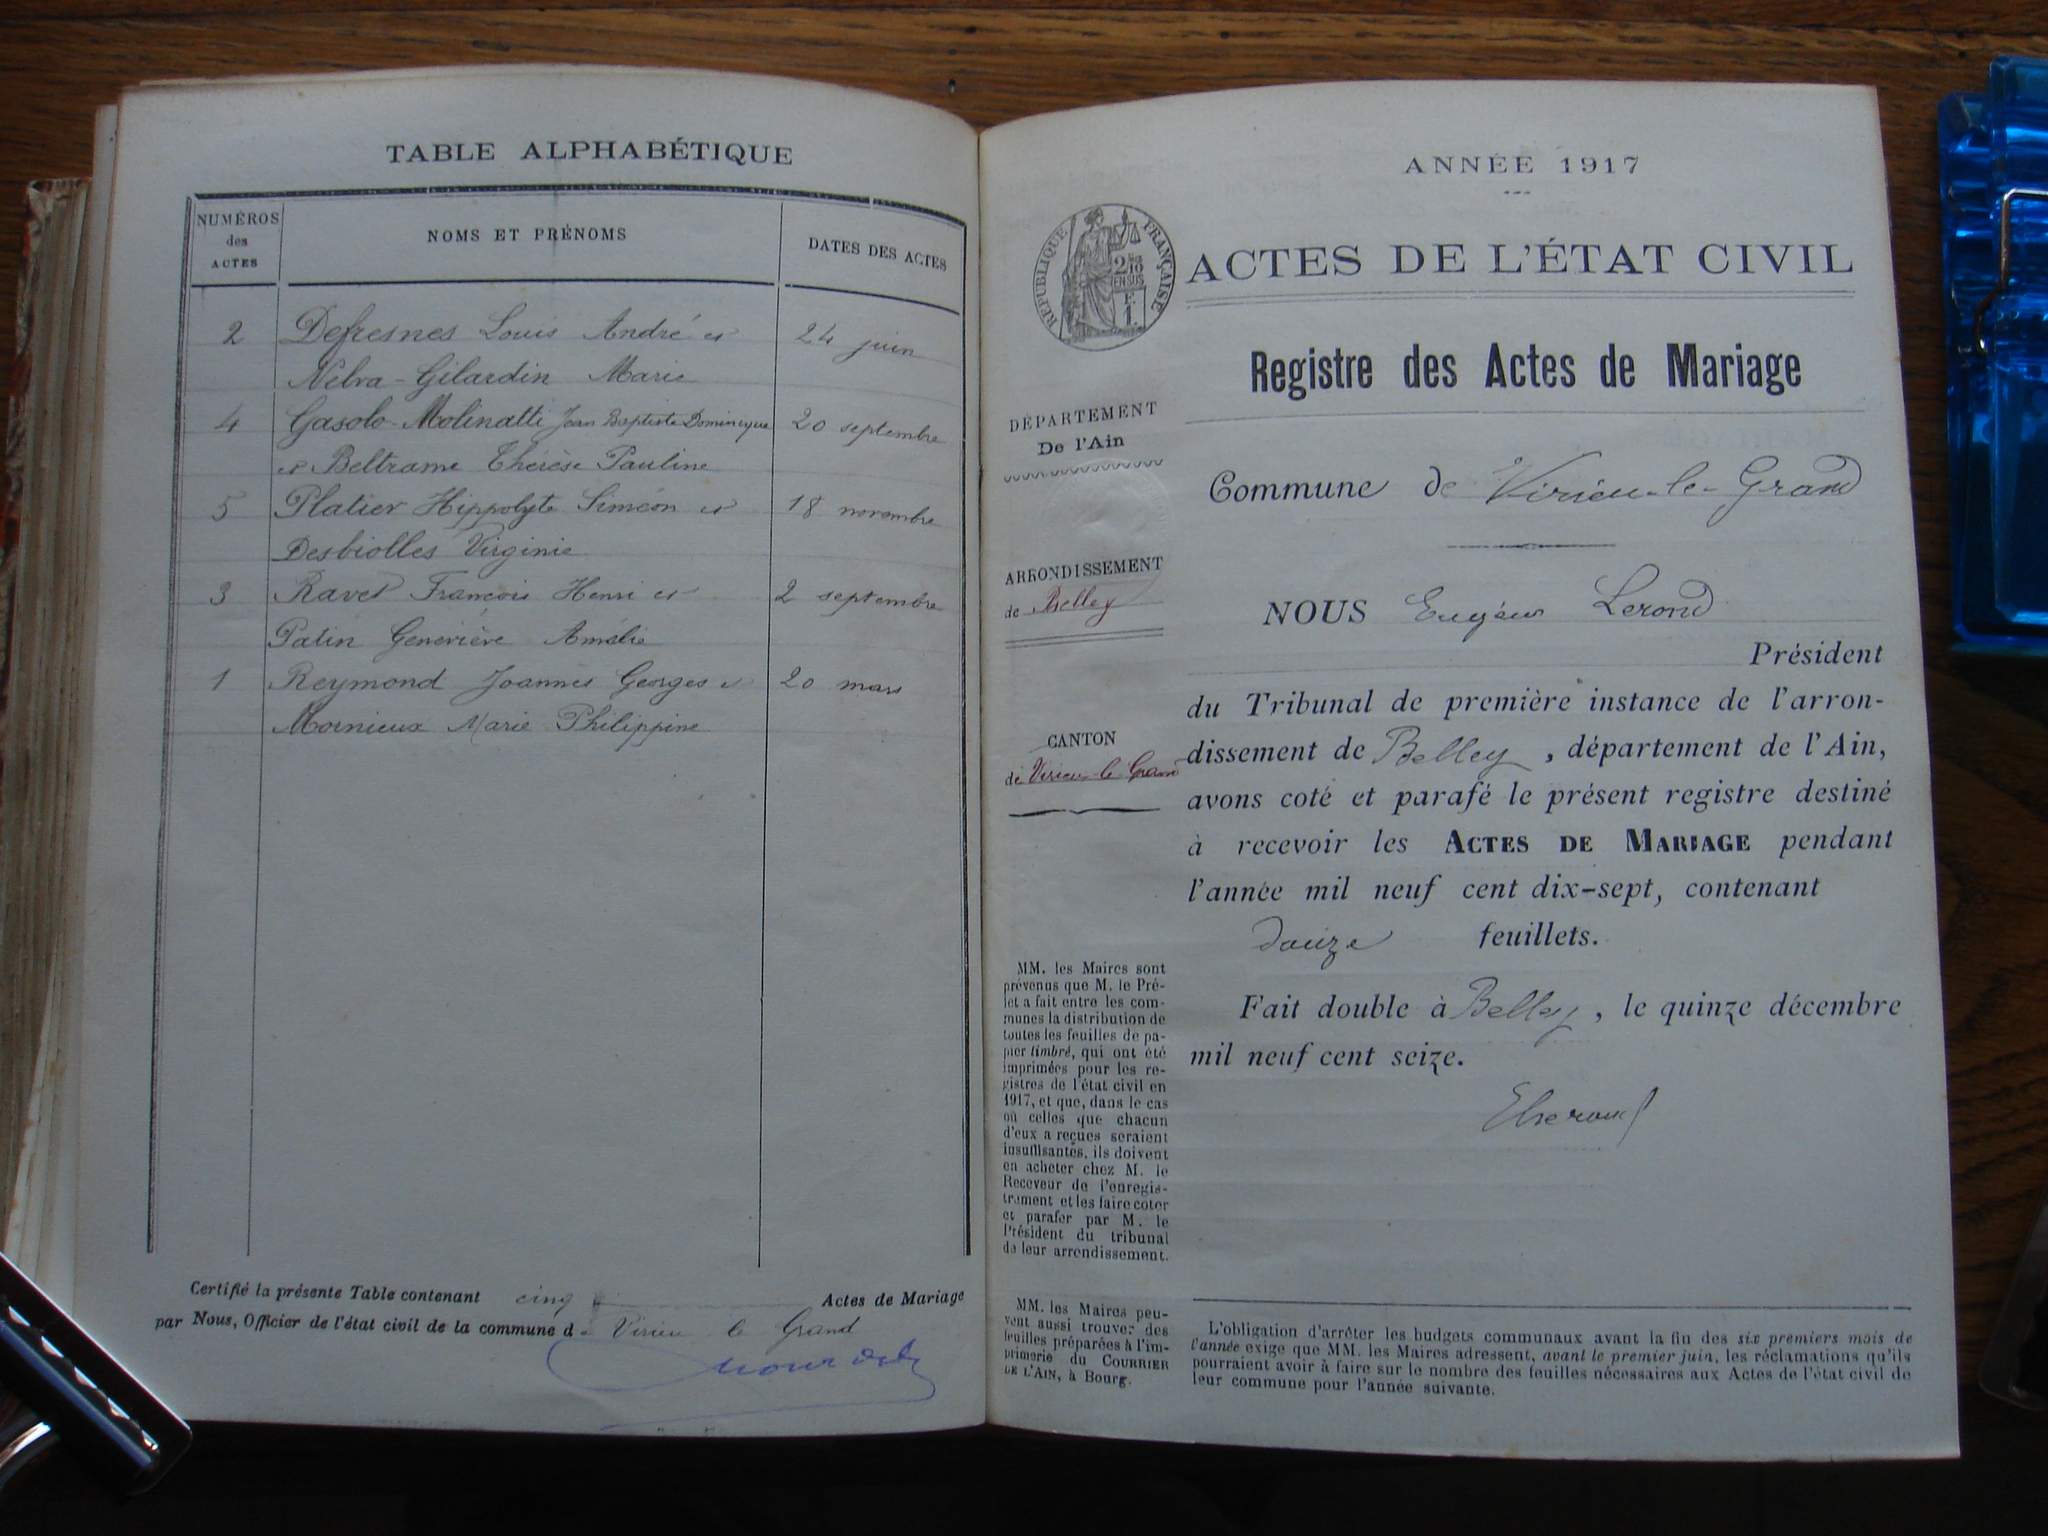 TABLE ALPHABÉTIQUE
NUMÉROS
des
ACTES
NOMS ET PRÉNOMS
DATES DES ACTES
2 Defresnes Louis André et 24 juin
Nelva-Gilardin Marie
4 Gasolo-Molinatti Jean Baptiste Dominique 20 septembre
et Beltrame Thérèse Pauline
5 Platier Hippolyte Siméon et 18 novembre
Desbiolles Virginie
3 Ravet François Henri et 2 septembre
Patin Geneviève Amélie
1 Reymond Joannès Georges et 20 mars
Mornieux Marie Philippine
Certifié la présente Table contenant cinq Actes de Mariage
par Nous, Officier de l'état civil de la commune de Virieu le Grand
ANNÉE 1917
RÉPUBLIQUE FRANÇAISE
2/10
EN SUS
F.
1.
ACTES DE L'ÉTAT CIVIL
Registre des Actes de Mariage
DÉPARTEMENT
De l'Ain
ARRONDISSEMENT
de Belley
CANTON
de Virieu-le-Grand
MM. les Maires sont
prévenus que M. le Pré-
fet a fait entre les com-
munes la distribution de
toutes les feuilles de pa-
pier timbré, qui ont été
imprimées pour les re-
gistres de l'état civil en
1917, et que, dans le cas
où celles que chacun
d'eux a reçues seraient
insuffisantes, ils doivent
en acheter chez M. le
Receveur de l'enregis-
trement et les faire coter
et parafer par M. le
Président du tribunal
de leur arrondissement.
MM. les Maires peu-
vent aussi trouver des
feuilles préparées à l'im-
primerie du COURRIER
DE L'AIN, à Bourg.
Commune de Virieu-le-Grand
NOUS Eugène Lerond
Président
du Tribunal de première instance de l'arron-
dissement de Belley, département de l'Ain,
avons coté et parafé le présent registre destiné
à recevoir les ACTES DE MARIAGE pendant
l'année mil neuf cent dix-sept, contenant
douze feuillets.
Fait double à Belley, le quinze décembre
mil neuf cent seize.
L'obligation d'arrêter les budgets communaux avant la fin des six premiers mois de
l'année exige que MM. les Maires adressent, avant le premier juin, les réclamations qu'ils
pourraient avoir à faire sur le nombre des feuilles nécessaires aux Actes de l'état civil de
leur commune pour l'année suivante.